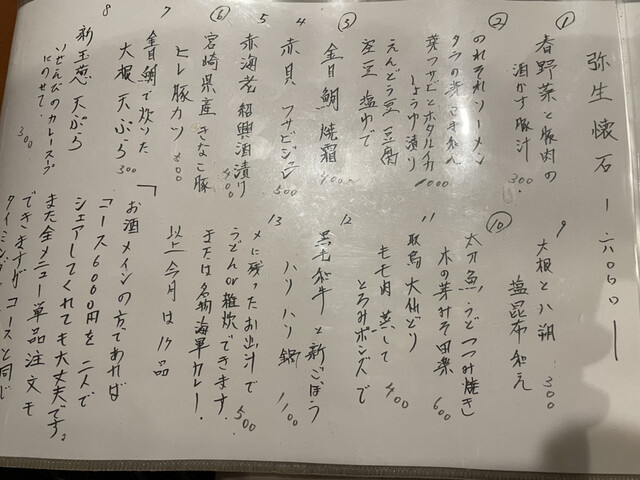 弥生懐石 ー六〇五〇ー
①
春野菜と豚肉の
酒かす豚汁
300
②
のれそれソーメン
タラの芽
葉ワサビとホタルイカ
しょうゆ漬り
えんどう豆 豆腐
空豆 塩ゆで
1000
③
金目鯛 焼霜
4
赤貝 ワサビジュン
500
5
赤海老 紹興酒漬け
400
⑥
宮崎県産きなこ豚
ヒレ豚カツ
600
7
金目鯛で炊いた
大根 天ぷら
300
8
新玉葱 天ぷら
いせえびのカレースープ
にのせて.
300
9
大根と八朔
塩昆布和え
300
⑩
太刀魚、うどつつみ焼き
木の芽みそ田楽
600
11
取鳥大山どり
もも肉 蒸して
とろみポンズで
400
12
黒毛和牛と新ごぼう
ハリハリ鍋
1100
13
〆に残ったお出汁で
うどんor雑炊できます.
または名物海軍カレー.
500
以上今月は13品
「お酒メインの方であれば
コース6000円を二人で
シェアしてくれても大丈夫です。
また全メニュー単品注文も
できますがコースと同じ
タイミング